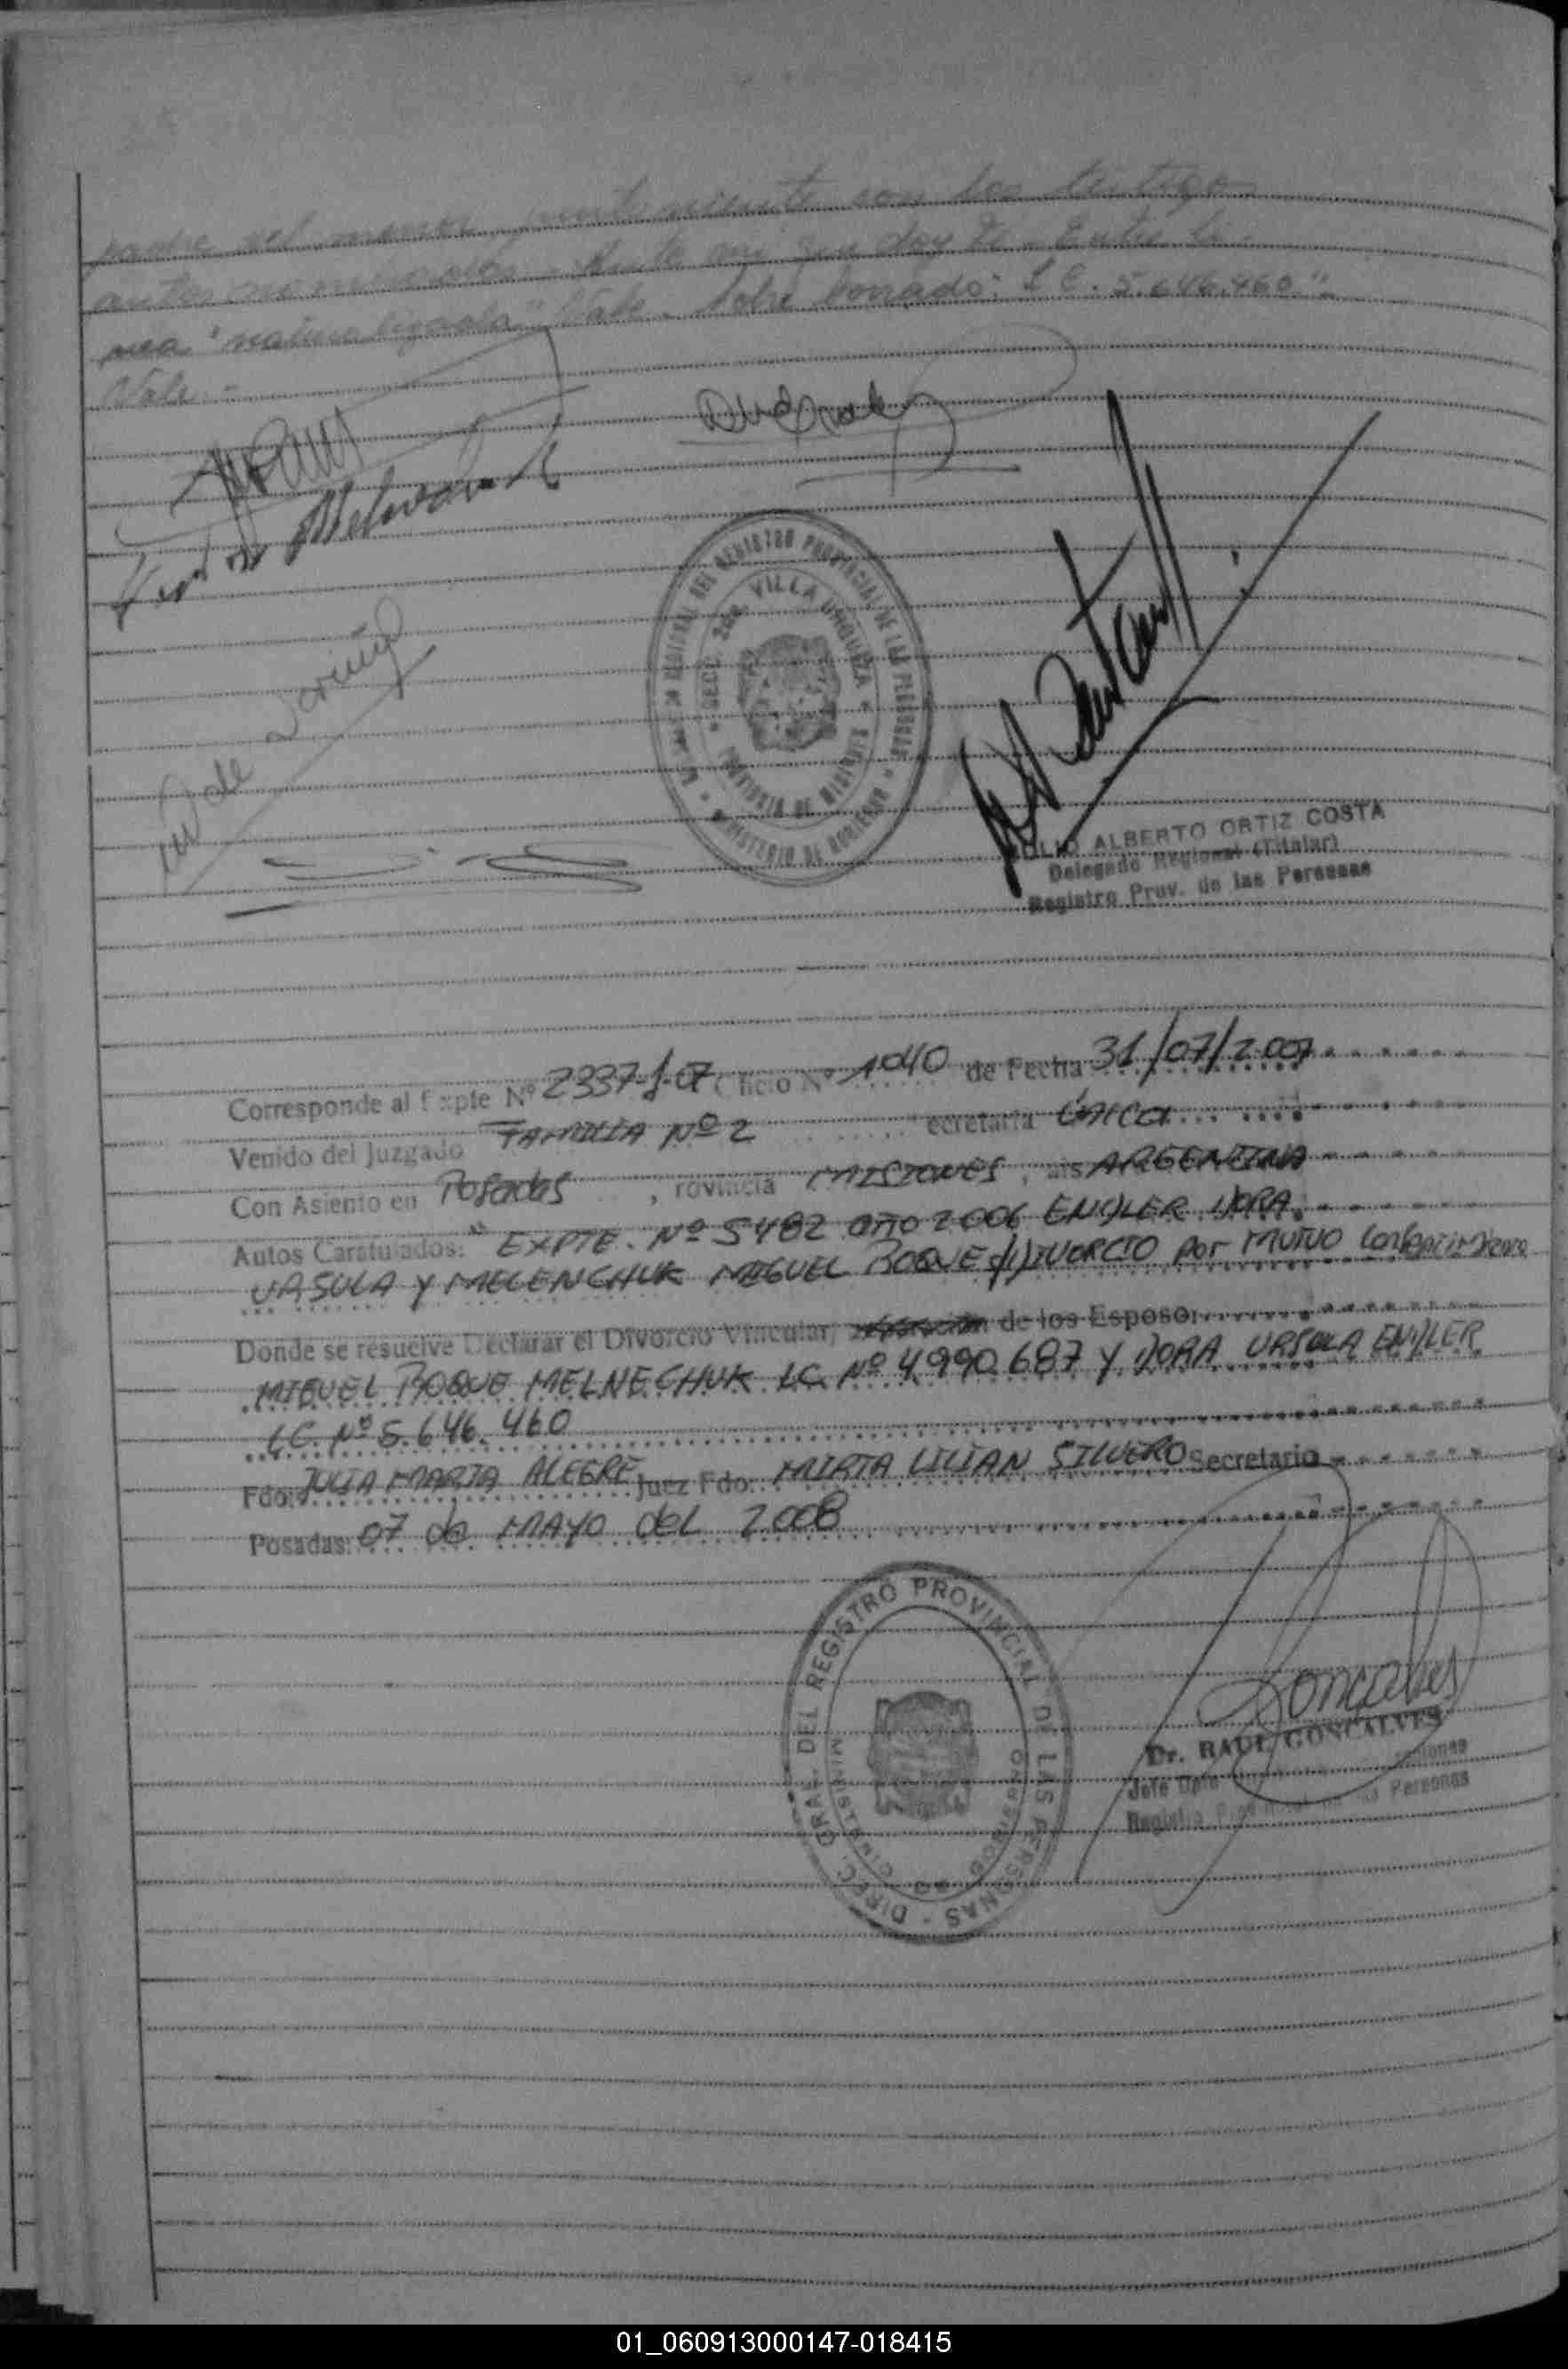 padre del menor, juntamente con los testigo
antes nombrados. Ante mi que doy fe. Entre li-
nea "naturalizada" Vale. Sobre borrado: L C. 5.646.460".
Vale.-
REGISTRO PROVINCIAL DE LAS PERSONAS
SECC. VILLA URQUIZA
PROVINCIA DE MISIONES
MINISTERIO DE GOBIERNO
JULIO ALBERTO ORTIZ COSTA
Delegado Regional (Titular)
Registro Prov. de las Personas
Corresponde al Expte Nº 2337-J-07 Oficio Nº 1040 de Fecha 31/07/2007
Venido del Juzgado FAMILIA Nº 2 ecretaria ÚNICA
Con Asiento en Posadas, rovincia MISIONES, ais ARGENTINA
Autos Caratulados: "EXPTE. Nº 5482 año 2006 ENGLER DORA
URSULA Y MELENCHUK MIGUEL ROQUE s/DIVORCIO por MUTUO Consentimiento
Donde se resuelve Declarar el Divorcio Vincular, de los Esposo:
MIGUEL ROQUE MELNECHUK LC. Nº 4.990.687 Y DORA URSULA ENGLER
LC. Nº 5.646.460
Fdo: JULIA MARTA ALEGRE Juez Fdo: MIRTA LILIAN SILVERO Secretario
Posadas: 07 de MAYO del 2008
DIREC. GRAL. DEL REGISTRO PROVINCIAL DE LAS PERSONAS
MINISTERIO GOBIERNO
Goncalves
Dr. RAUL GONCALVES
Jefe Dpto
Registro Provincial de las Personas
01_060913000147-018415